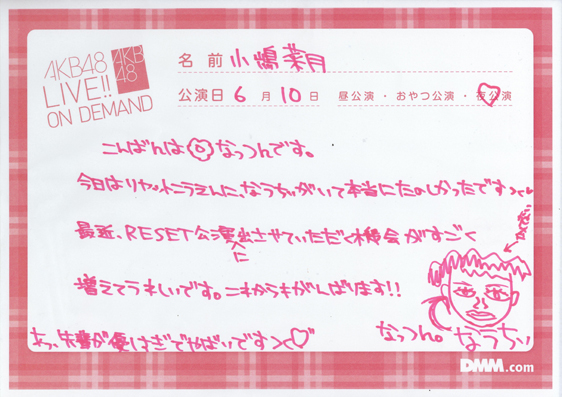 AKB48
LIVE!!
ON DEMAND
AKB
48
名前 小嶋菜月
公演日 6月10日 昼公演・おやつ公演・夜公演
こんばんは なっつんです。
今日は に、なうちぃがいて本当にたのしかったです
最近、RESET公演に出させていただく機会がすごく
増えてうれしいです。これからもがんばります!!
あっ、 が優しすぎてやばいです
なっつん。
なうちぃ
DMM.com